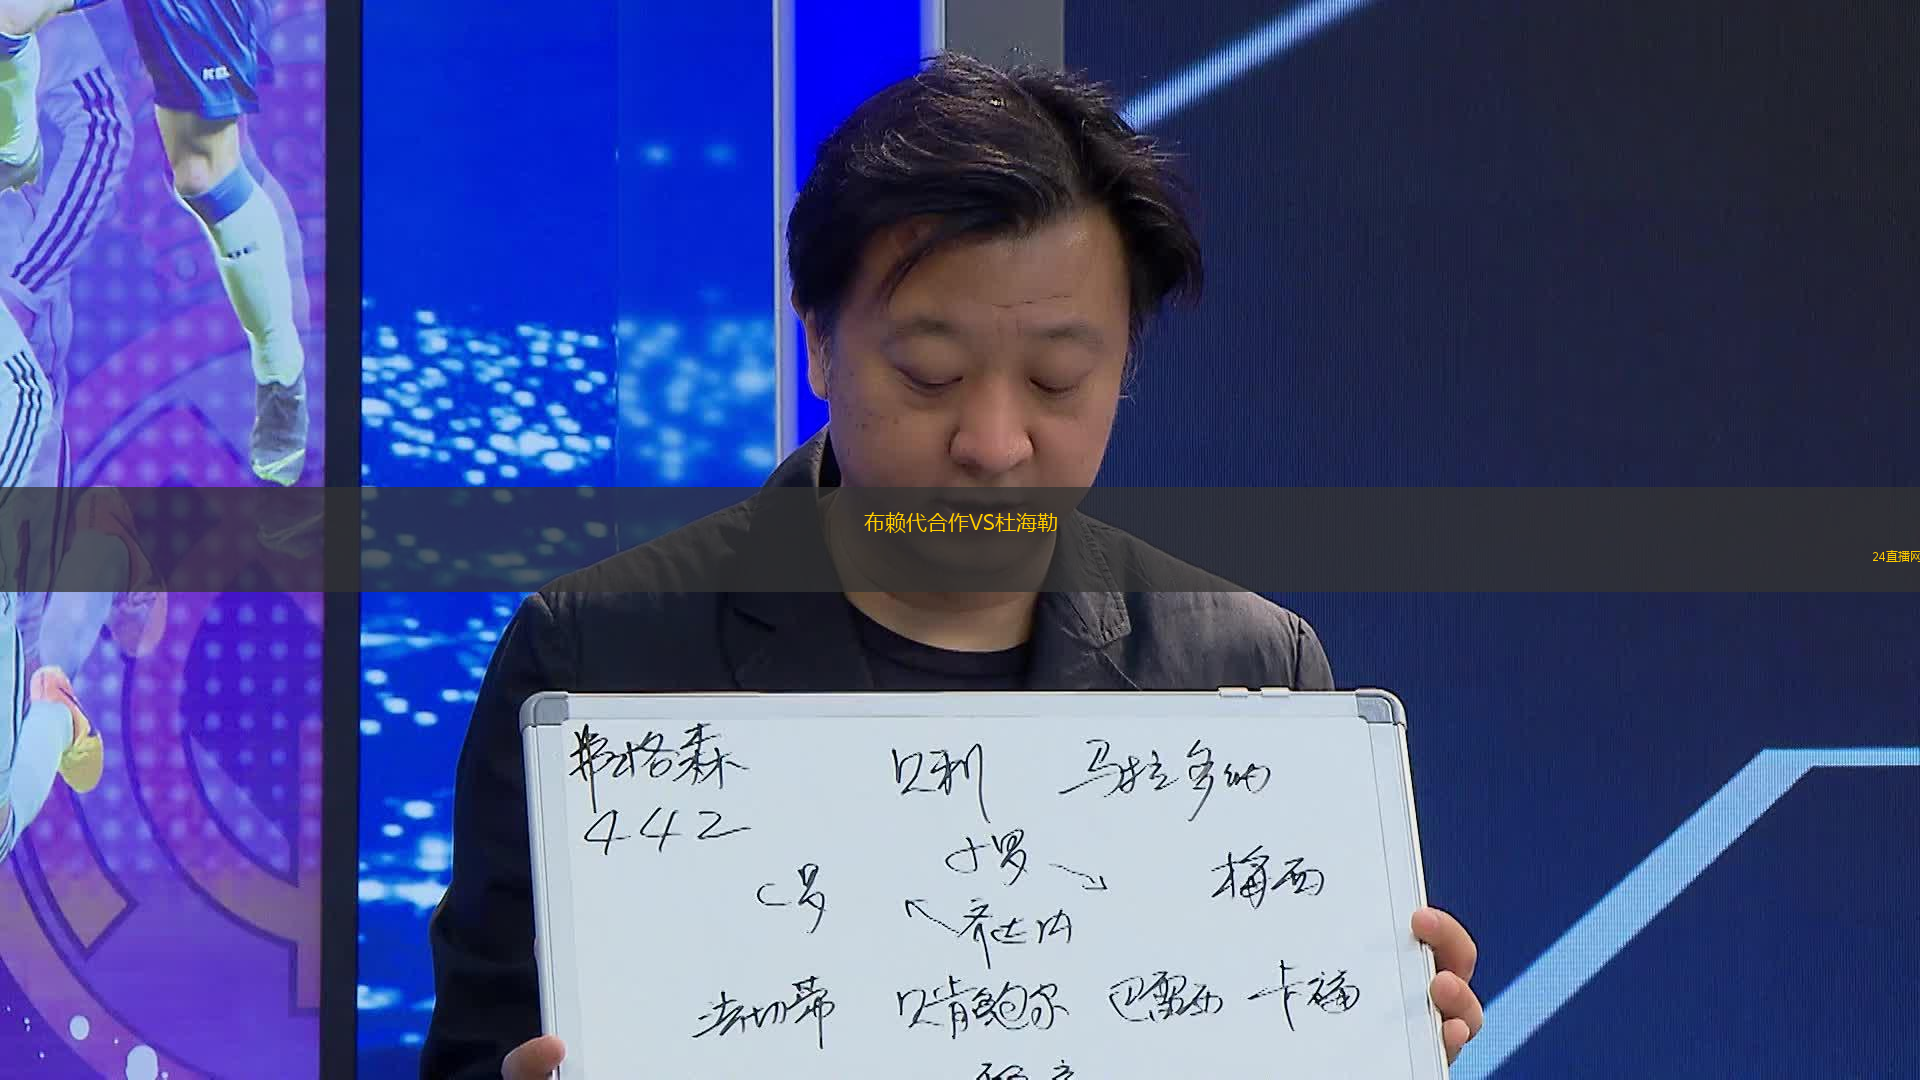 布赖代合作VS杜海勒
24直播网
弗格森 贝利 马拉多纳
442
小罗
C罗 梅西
齐达内
法切蒂 贝肯鲍尔 巴雷西 卡福